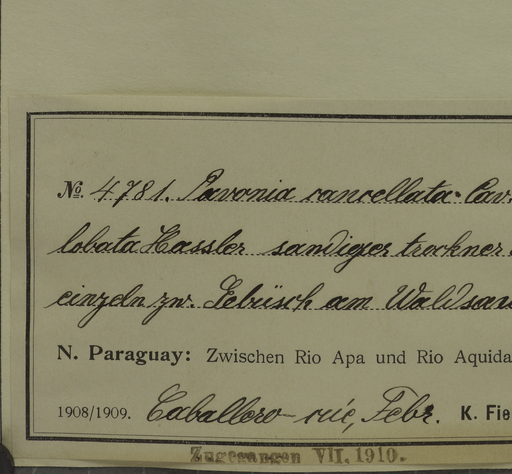 No. 4781. Pavonia cancellata Cav.
lobata Hassler sandiger trockner
einzeln zw. Gebüsch am Waldsau
N. Paraguay: Zwischen Rio Apa und Rio Aquida
1908/1909. Caballero-cué, Febr. K. Fie
Zugegangen VII. 1910.